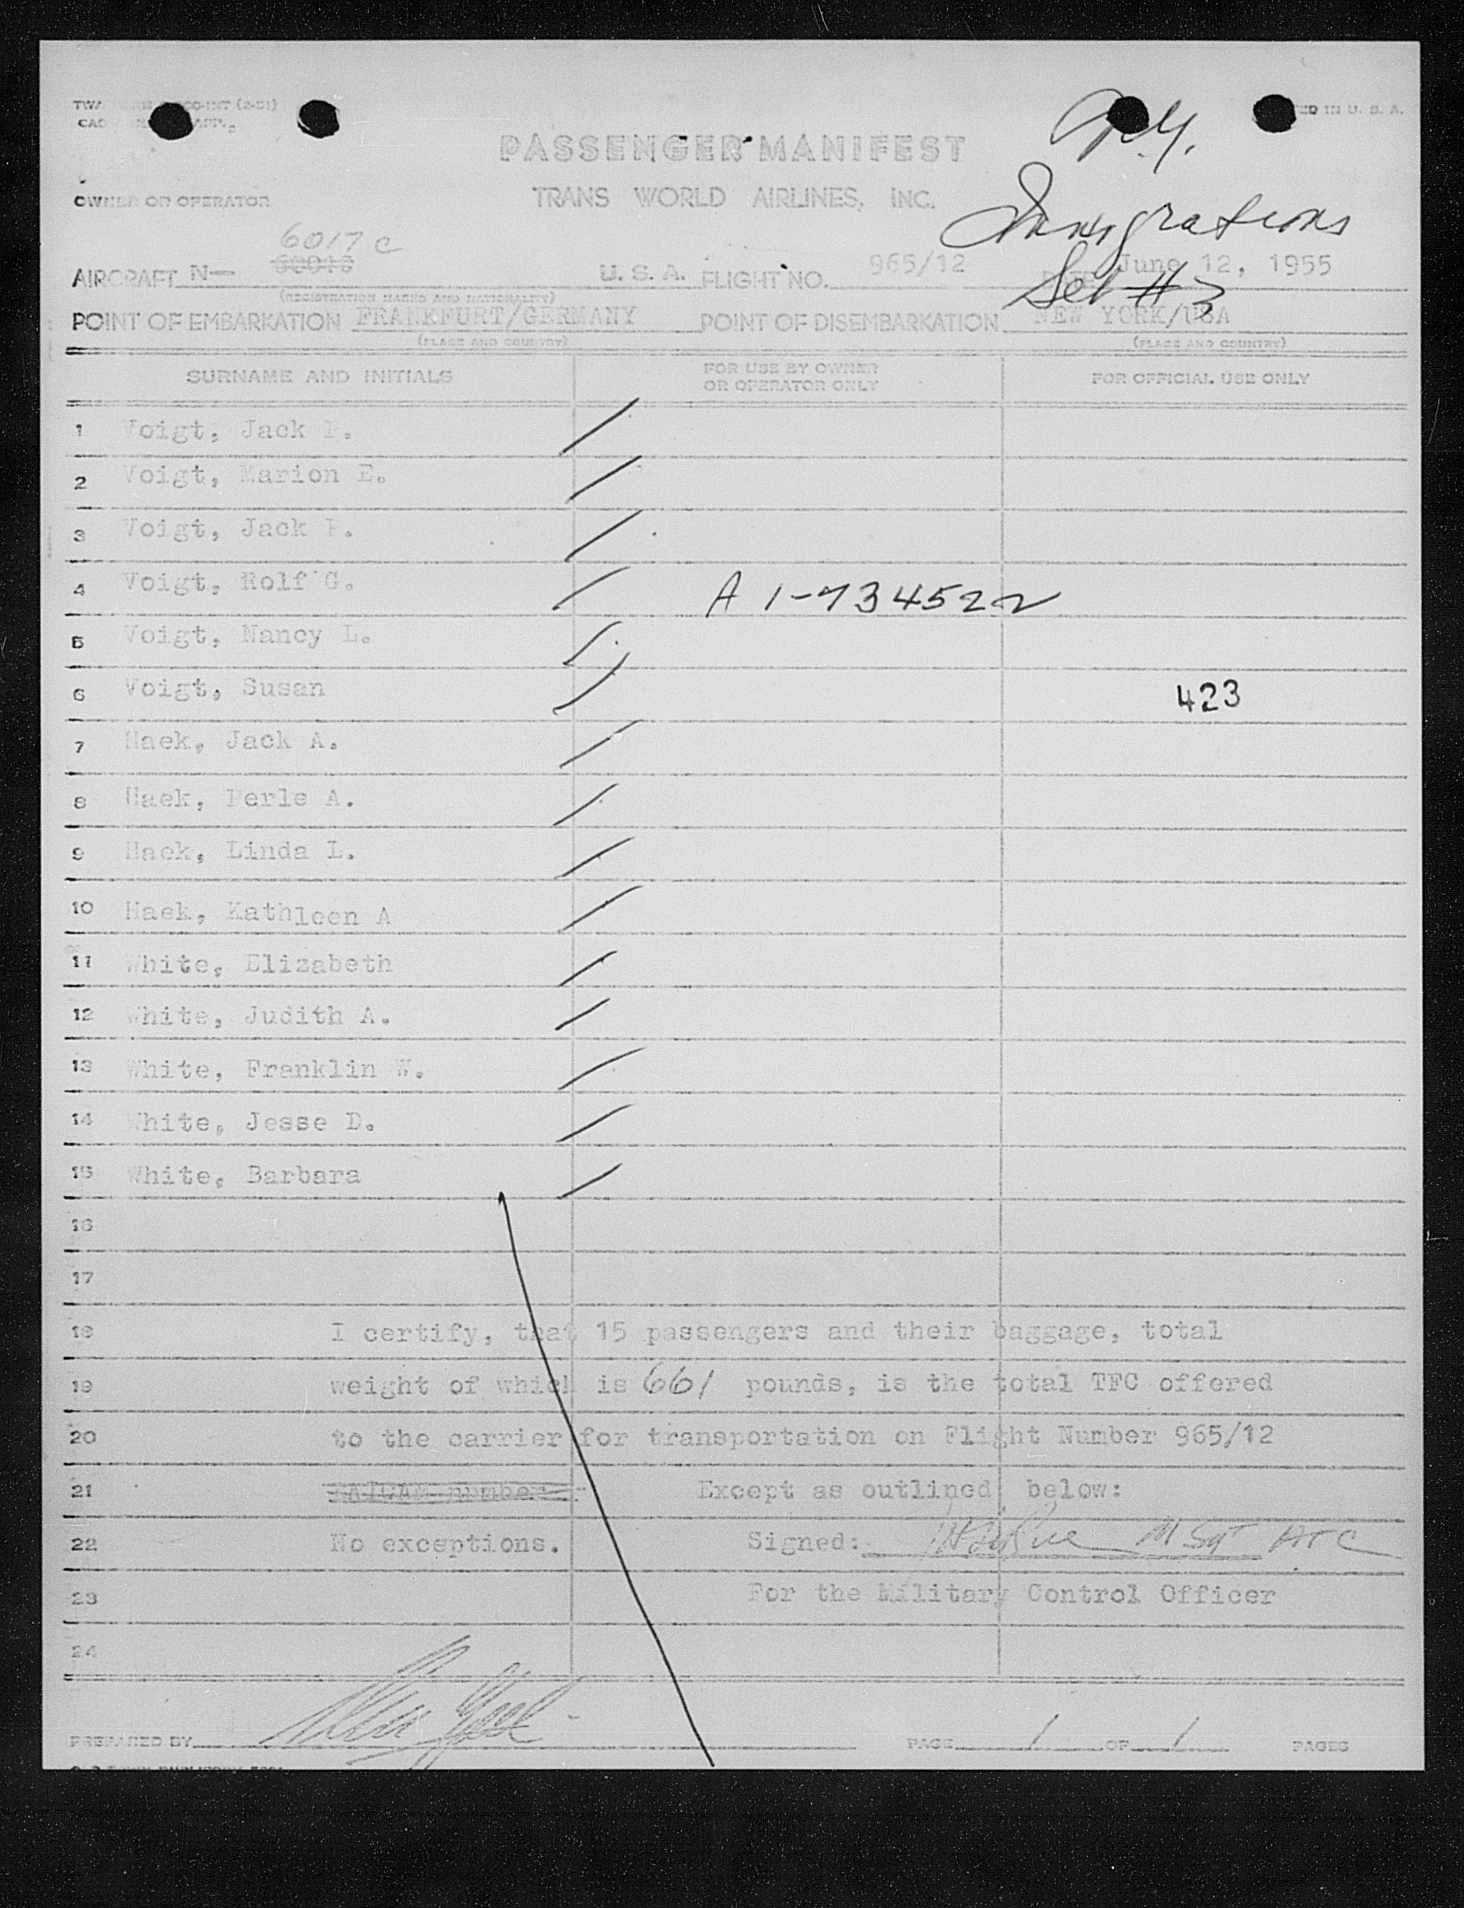 PASSENGER MANIFEST
TRANS WORLD AIRLINES, INC.
Immigrations
Set #3
OWNER OR OPERATOR
6017C
AIRCRAFT N— U. S. A. FLIGHT NO. 965/12 DATE June 12, 1955
(REGISTRATION MARKS AND NATIONALITY)
POINT OF EMBARKATION FRANKFURT/GERMANY POINT OF DISEMBARKATION NEW YORK/USA
(PLACE AND COUNTRY) (PLACE AND COUNTRY)
SURNAME AND INITIALS FOR USE BY OWNER OR OPERATOR ONLY FOR OFFICIAL USE ONLY
1 Voigt, Jack
2 Voigt, Marion E.
3 Voigt, Jack
4 Voigt, Rolf G. A 1-734522
5 Voigt, Nancy L.
6 Voigt, Susan 423
7 Haek, Jack A.
8 Haek, Perle A.
9 Haek, Linda L.
10 Haek, Kathleen A
11 White, Elizabeth
12 White, Judith A.
13 White, Franklin W.
14 White, Jesse D.
15 White, Barbara
16
17
18 I certify, that 15 passengers and their baggage, total
19 weight of which is 661 pounds, is the total TFC offered
20 to the carrier for transportation on Flight Number 965/12
21 Except as outlined below:
22 No exceptions. Signed: M Sgt
23 For the Military Control Officer
24
PREPARED BY PAGE 1 OF 1 PAGES